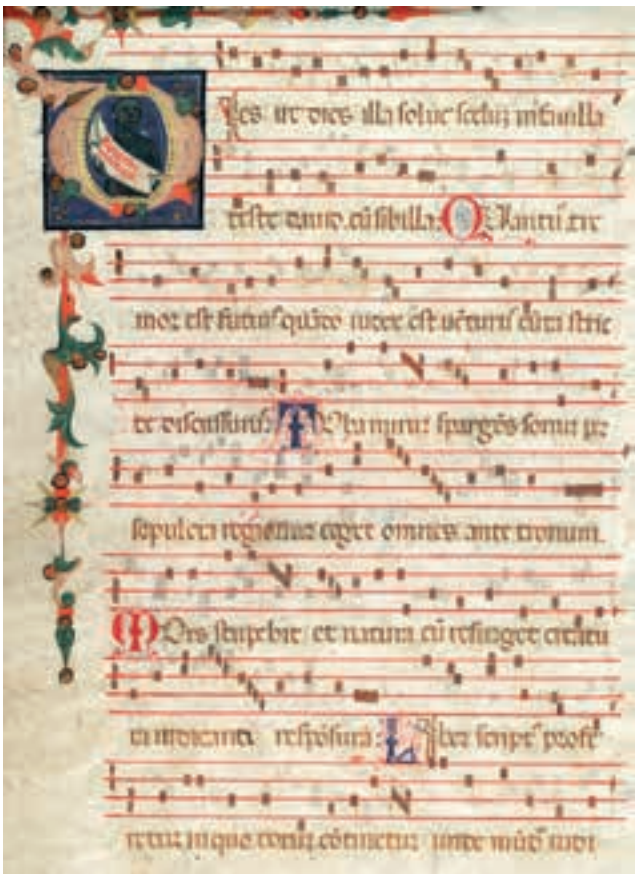 Dies ire dies illa soluet seclū infauilla
teste dauid cū sibilla. Quantꝰ tre
mor est futurꝰ quādo iudex est uēturꝰ cūcta stric
te discussurꝰ. Tuba mirum spargēs sonum per
sepulcra regionum coget omnes ante tronum.
Mors stupebit et natura cū resurget creatu
ra iudicanti respōsura. Liber scriptꝰ profe
retur in quo totum cōtinetur unde mūdꝰ iudi